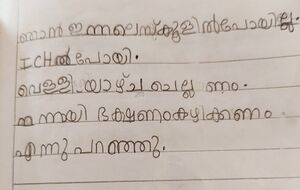 ഞാൻ ഇന്നലെ സ്കൂളിൽ പോയില്ല.
ICH ൽ പോയി.
വെള്ളിയാഴ്ച ചെല്ലണം.
നന്നായി ഭക്ഷണം കഴിക്കണം
എന്നു പറഞ്ഞു.